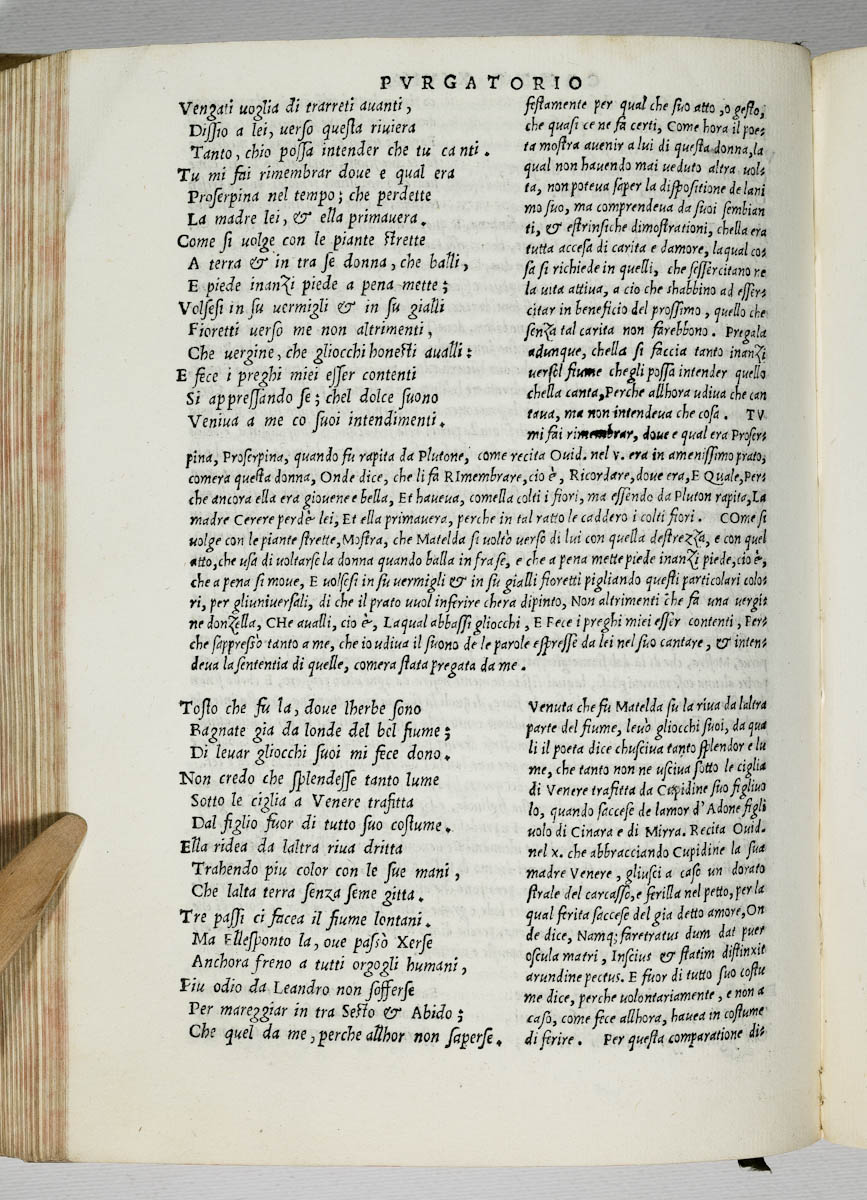 PVRGATORIO
Vengati uoglia di trarreti auanti,
Dissio a lei, uerso questa riuiera
Tanto, chio possa intender che tu canti.
Tu mi fai rimembrar doue e qual era
Proserpina nel tempo; che perdette
La madre lei, & ella primauera.
Come si uolge con le piante strette
A terra & in tra se donna, che balli,
E piede inanzi piede a pena mette;
Volsesi in su uermigli & in su gialli
Fioretti uerso me non altrimenti,
Che uergine, che gliocchi honesti aualli:
E fece i preghi miei esser contenti
Si appressando se; chel dolce suono
Veniua a me co suoi intendimenti.
festamente per qual che suo atto, o gesto,
che quasi ce ne fa certi, Come hora il poe-
ta mostra auenir a lui di questa donna, la
qual non hauendo mai ueduto altra uol-
ta, non poteua saper la dispositione de lani
mo suo, ma comprendeua da suoi sembian
ti, & estrinsiche dimostrationi, chella era
tutta accesa di carita e damore, laqual co-
sa si richiede in quelli, che sessercitano ne
la uita attiua, a cio che shabbino ad esser-
citar in beneficio del prossimo, quello che
senza tal carita non farebbono. Pregala
adunque, chella si faccia tanto inanzi
uersel fiume chegli possa intender quello
chella canta, Perche allhora udiua che can
taua, ma non intendeua che cosa. TV
mi fai rimembrar, doue e qual era Proser-
pina, Proserpina, quando fu rapita da Plutone, come recita Ouid. nel v. era in amenissimo prato,
comera questa donna, Onde dice, che li fa RImembrare, cio è, Ricordare, doue era, E Quale, Per-
che ancora ella era giouene e bella, Et haueua, comella colti i fiori, ma essendo da Pluton rapita, La
madre Cerere perdè lei, Et ella primauera, perche in tal ratto le caddero i colti fiori. COme si
uolge con le piante strette, Mostra, che Matelda si uoltò uerso di lui con quella destrezza, e con quel
atto, che usa di uoltarse la donna quando balla in fra se, e che a pena mette piede inanzi piede, cio è,
che a pena si moue, E uolsesi in su uermigli & in su gialli fioretti pigliando questi particolari colo-
ri, per gliuniuersali, di che il prato uuol inferire chera dipinto, Non altrimenti che fa una uergi-
ne donzella, CHe aualli, cio è, Laqual abbassi gliocchi, E Fece i preghi miei esser contenti, Per-
che sappressò tanto a me, che io udiua il suono de le parole espresse da lei nel suo cantare, & inten-
deua la sententia di quelle, comera stata pregata da me.
Tosto che fu la, doue lherbe sono
Bagnate gia da londe del bel fiume;
Di leuar gliocchi suoi mi fece dono.
Non credo che splendesse tanto lume
Sotto le ciglia a Venere trafitta
Dal figlio fuor di tutto suo costume.
Ella ridea da laltra riua dritta
Trahendo piu color con le sue mani,
Che lalta terra senza seme gitta.
Tre passi ci facea il fiume lontani.
Ma Ellesponto la, oue passò Xerse
Anchora freno a tutti orgogli humani,
Piu odio da Leandro non sofferse
Per mareggiar in tra Sesto & Abido;
Che quel da me, perche allhor non saperse.
Venuta che fu Matelda su la riua da laltra
parte del fiume, leuò gliocchi suoi, da qua
li il poeta dice chusciua tanto splendor e lu
me, che tanto non ne usciua sotto le ciglia
di Venere trafitta da Cupidine suo figliuo
lo, quando saccese de lamor d'Adone figli
uolo di Cinara e di Mirra. Recita Ouid.
nel x. che abbracciando Cupidine la sua
madre Venere, gliusci a caso un dorato
strale del carcasso, e ferilla nel petto, per la
qual ferita saccese del gia detto amore, On
de dice, Namq; faretratus dum dat puer
oscula matri, Inscius & statim distinxit
arundine pectus. E fuor di tutto suo costu
me dice, perche uolontariamente, e non a
caso, come fece allhora, hauea in costume
di ferire. Per questa comparatione di-